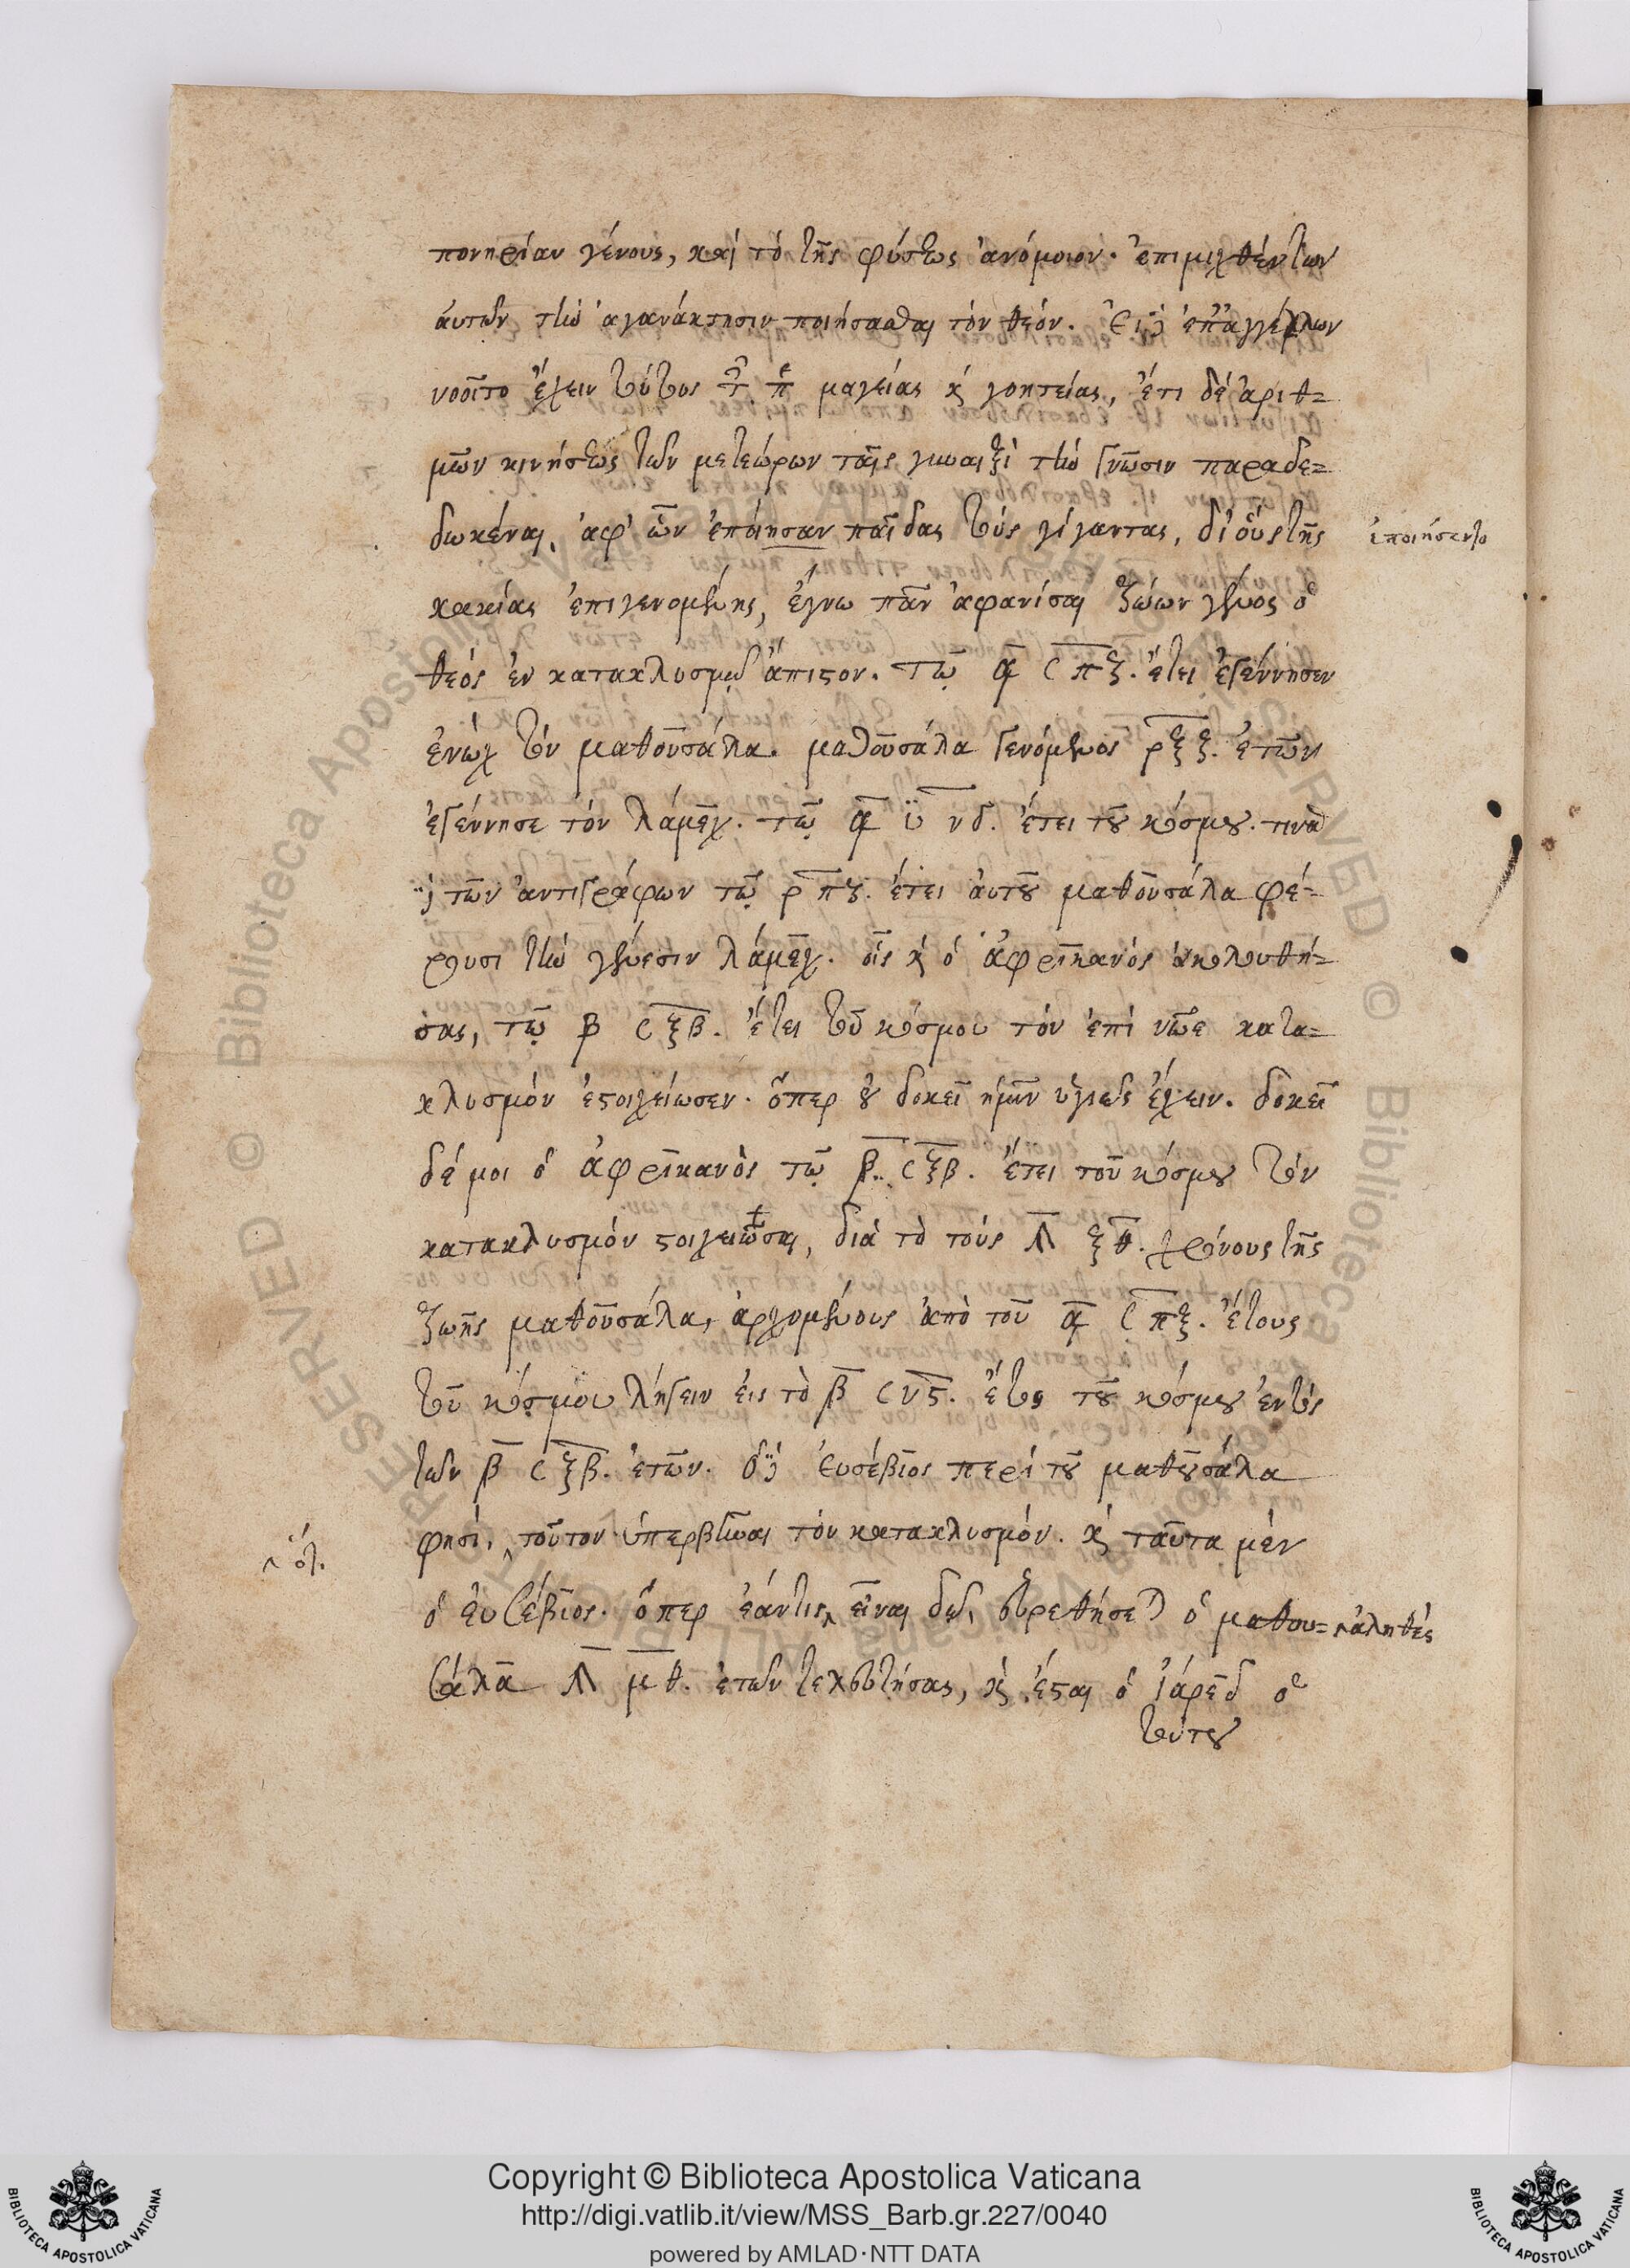 πονηρίαν γένους, καὶ τὸ τῆς φύσεως ἀνόμοιον. ἐπιμιχθέντων
ἀυτῶν τὴν ἀγανάκτησιν ποιήσασθαι τὸν θεόν. Εἰ δὲ ἐπ' ἀγγέλων
νοοῖτο ἔχειν τούτους τ π μαγείας κ γοητείας, ἔτι δὲ ἀριθ=
μῶν κινήσεως τῶν μετεώρων ταῖς γυναιξὶ τὴν γνῶσιν παραδε=
δωκέναι, ἀφ' ὧν ἐποίησαν παῖδας τοὺς γίγαντας, δι' οὓς τῆς
ἐποιήσαντο
κακίας ἐπιγενομένης, ἔγνω πᾶν ἀφανίσαι ζώων γένος ὁ
θεὸς ἐν κατακλυσμῷ ἄπιστον. Τῷ ͵α ς π ζ. ἔτει ἐγέννησεν
ἐνὼχ τὸν μαθουσάλα. μαθουσάλα γενόμενος ρξζ. ἐτῶν
ἐγέννησε τὸν λάμεχ. τῷ ͵α υ νδ. ἔτει τοῦ κόσμου. τινὰ
δὲ τῶν ἀντιγράφων τῷ ρπζ. ἔτει ἀυτοῦ μαθουσάλα φέ=
ρουσι τὴν γένεσιν λάμεχ. οἷς κ ὁ ἀφρικανὸς ἀκολουθή=
σας, τῷ β ς ξβ. ἔτει τοῦ κόσμου τὸν ἐπὶ νῶε κατα=
κλυσμὸν ἐστοιχείωσεν. ὅπερ οὐ δοκεῖ ἡμῖν ὑγιῶς ἔχειν. δοκεῖ
δέ μοι ὁ ἀφρικανὸς τῷ β ς ξβ. ἔτει τοῦ κόσμου τὸν
κατακλυσμὸν στοιχειῶσαι, διὰ τὸ τοὺς ϡ ξθ. χρόνους τῆς
ζωῆς μαθουσάλα, ἀρχομένους ἀπὸ τοῦ ͵α ς πζ. ἔτους
τοῦ κόσμου λήγειν εἰς τὸ β ς νς. ἔτος τοῦ κόσμου ἐντὸς
τῶν β ς ξβ. ἐτῶν. ὁ δὲ ἐυσέβιος περὶ τοῦ μαθουσάλα
φησί, τοῦτον ὑπερβιῶσαι τὸν κατακλυσμόν. κ ταῦτα μὲν
ὅτι
ὁ ἐυσέβιος. ὅπερ ἐάν τις εἶναι δῷ, εὑρεθήσεται ὁ μαθου=
ἀληθὲς
σάλα ϡ μθ. ἐτῶν τελευτήσας, κ ἔσται ὁ ἰάρεδ ὁ
τούτου
Copyright © Biblioteca Apostolica Vaticana
http://digi.vatlib.it/view/MSS_Barb.gr.227/0040
powered by AMLAD·NTT DATA